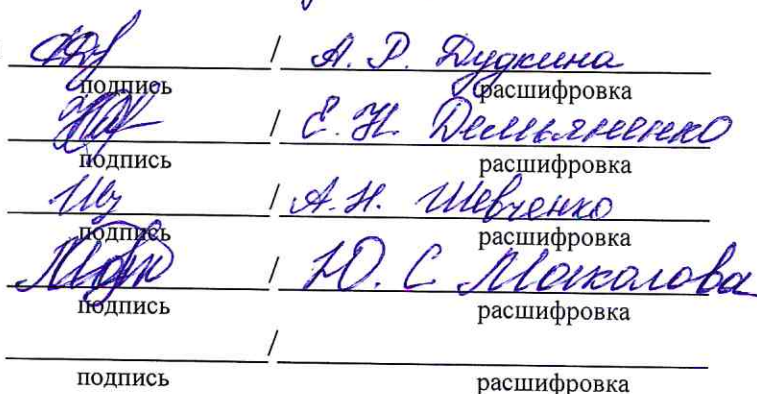 / А. Р. Дудкина
подпись расшифровка
/ Е. Н. Демьяненко
подпись расшифровка
/ А. Н. Шевченко
подпись расшифровка
/ Ю. С Маколова
подпись расшифровка
/
подпись расшифровка